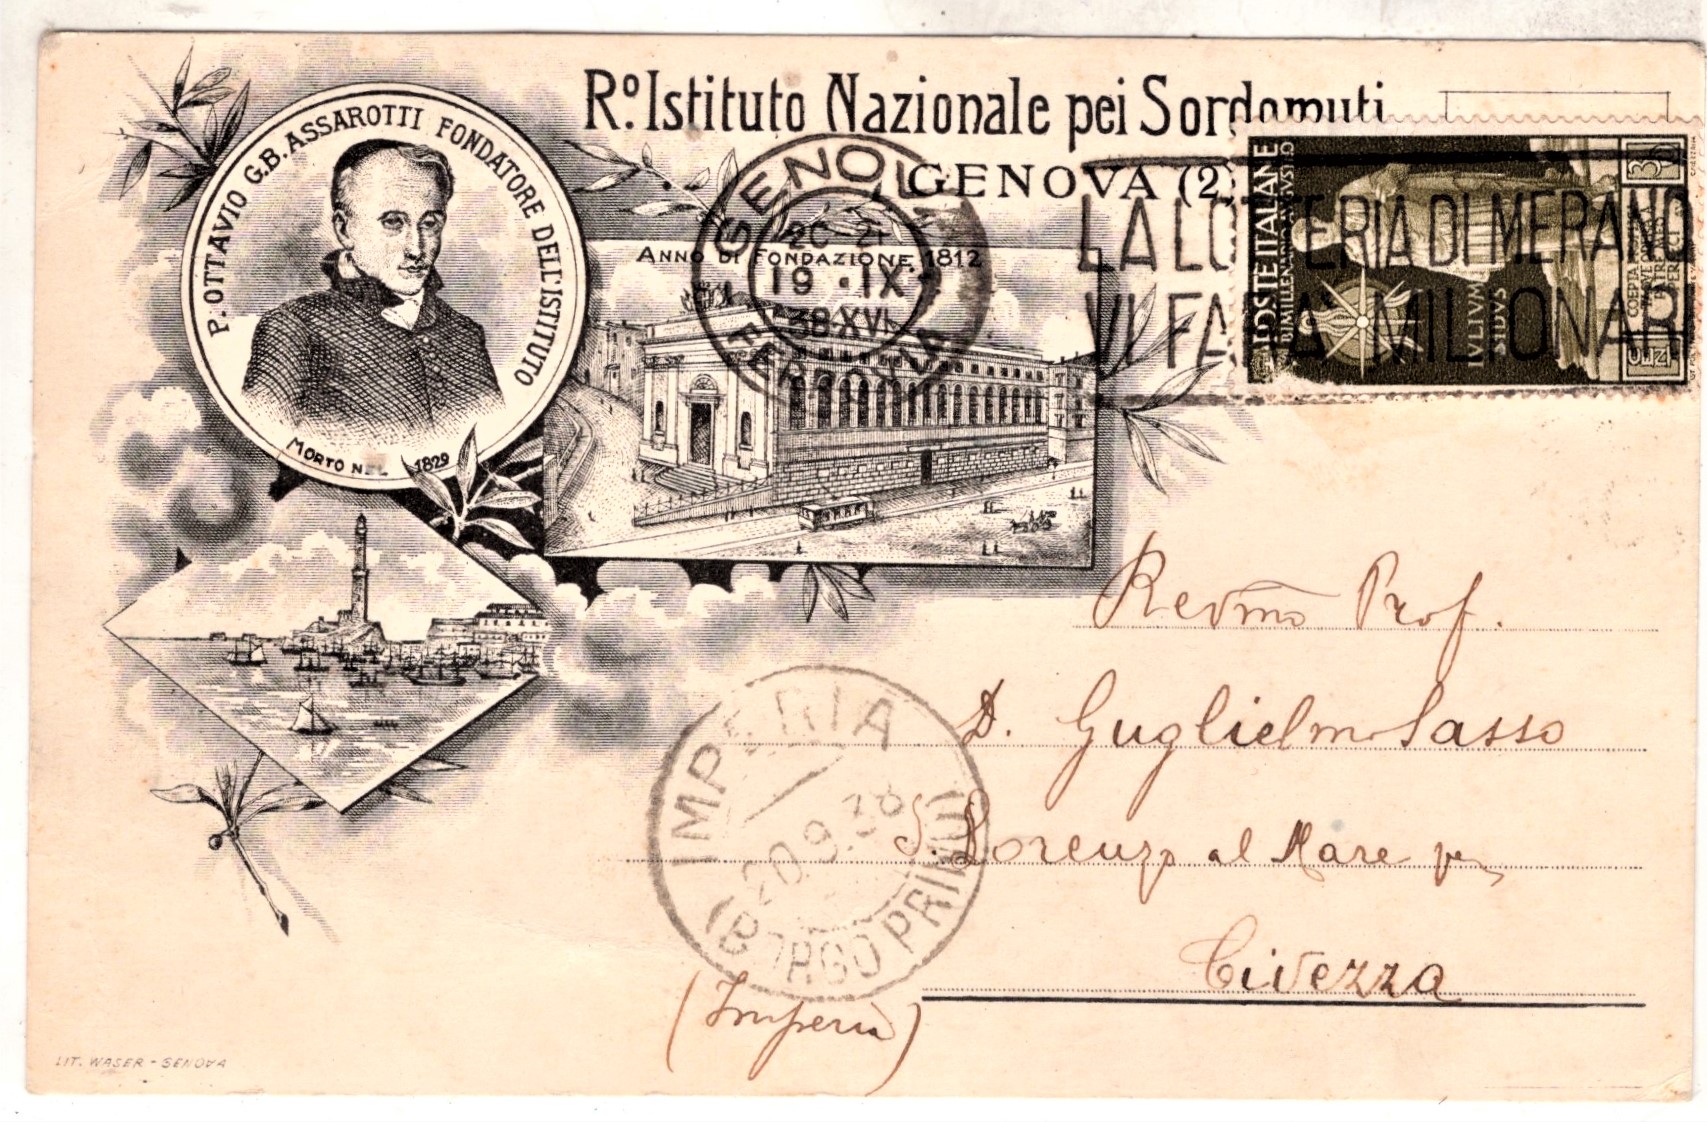 Rº. Istituto Nazionale pei Sordomuti
GENOVA (2)
P. OTTAVIO G.B. ASSAROTTI FONDATORE DELL'ISTITUTO
MORTO NEL 1829
ANNO DI FONDAZIONE 1812
GENOVA
20 21
19 · IX ·
38·XVI
FERROVIA
LA LOTTERIA DI MERANO
VI FARÀ MILIONARI
POSTE ITALIANE
BIMILLENARIO AUGUSTEO
IVLIVM
SIDVS
CENT
Revmo Prof.
D. Guglielmo Sasso
S. Lorenzo al Mare per
Civezza
(Imperia)
IMPERIA
20.9.38
(BORGO PRINO)
LIT. WASER - GENOVA